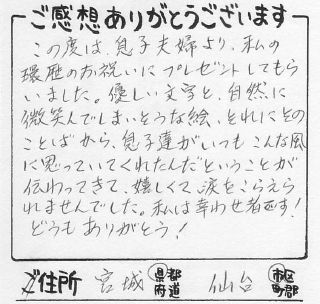 ご感想ありがとうございます
この度は、息子夫婦より、私の
環歴のお祝いにプレゼントしてもら
いました。優しい文字と、自然に
微笑んでしまいそうな絵、それにその
ことばから、息子達がいつもこんな風
に思っていてくれたんだということが
伝わってきて、嬉しくて涙をこらえら
れませんでした。私は幸わせ者です!
どうもありがとう!
ご住所 宮城 県都府道 仙台 市区町郡